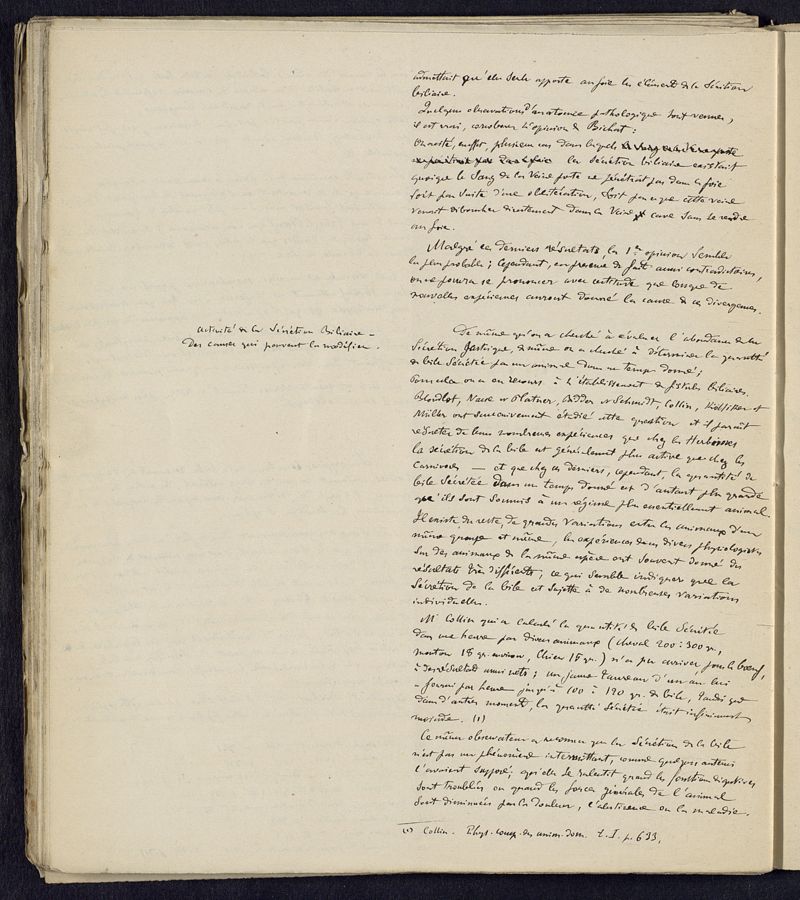 admettait qu'elle seule apporte au foie les éléments de la Sécrétion
biliaire.
Quelques observations d'anatomie pathologique sont venues,
il est vrai, corroborer l'opinion de Bichat :
On a cité, en effet, plusieurs cas dans lesquels
la Sécrétion biliaire existait
quoique le Sang de la Veine porte ne pénétrait pas dans le foie
Soit par suite d'une oblitération, Soit parce que cette veine
venait déboucher directement dans la Veine cave sans se rendre
au foie.
Malgré ces derniers résultats, la 1re opinion semble
la plus probable ; Cependant, en présence de faits aussi contradictoires,
on ne pourra se prononcer avec certitude que lorsque de
nouvelles expériences auront donné la cause de ces divergences.
Activité de la Sécrétion Biliaire -
Des causes qui peuvent la modifier.
De même qu'on a cherché à évaluer l'abondance de la
Sécrétion gastrique, de même on a cherché à déterminer la quantité
de bile Sécrétée par un animal dans un temps donné ;
Pour cela on a eu recours à l'établissement de fistules biliaires.
Blondlot, Nasse et Platner, Bidder et Schmidt, Collin, Kölliker et
Müller ont successivement étudié cette question et il paraît
résulter de leurs nombreuses expériences que chez les Herbivores
la sécrétion de la bile est généralement plus active que chez les
Carnivores — et que chez ces derniers, cependant, la quantité de
bile Sécrétée dans un temps donné est d'autant plus grande
qu'ils sont soumis à un régime plus essentiellement animal.
Il existe, du reste, de grandes variations entre les animaux d'un
même groupe et même, les expériences des divers physiologistes
sur des animaux de la même espèce ont souvent donné des
résultats très différents ; ce qui semble indiquer que la
Sécrétion de la bile est sujette à de nombreuses variations
individuelles.
Mr Collin qui a calculé la quantité de bile Sécrétée
dans une heure par divers animaux (cheval 200 à 300 gr.,
mouton 18 gr. environ, Chien 15 gr.) n'a pu arriver pour le bœuf,
à des résultats aussi nets ; un jeune taureau d'un an lui
a fourni par heure jusqu'à 100 à 120 gr. de bile, tandis que
dans d'autres moments, la quantité Sécrétée était infiniment
moindre. (1)
Ce même observateur a reconnu que la Sécrétion de la bile
n'est pas un phénomène intermittent, comme quelques auteurs
l'avaient supposé, qu'elle se ralentit quand les fonctions digestives
sont troublées ou quand les forces générales de l'animal
sont diminuées par la douleur, l'abstinence ou la maladie.
(1) Collin. Phys. comp. des anim. dom. t. I. p. 633.